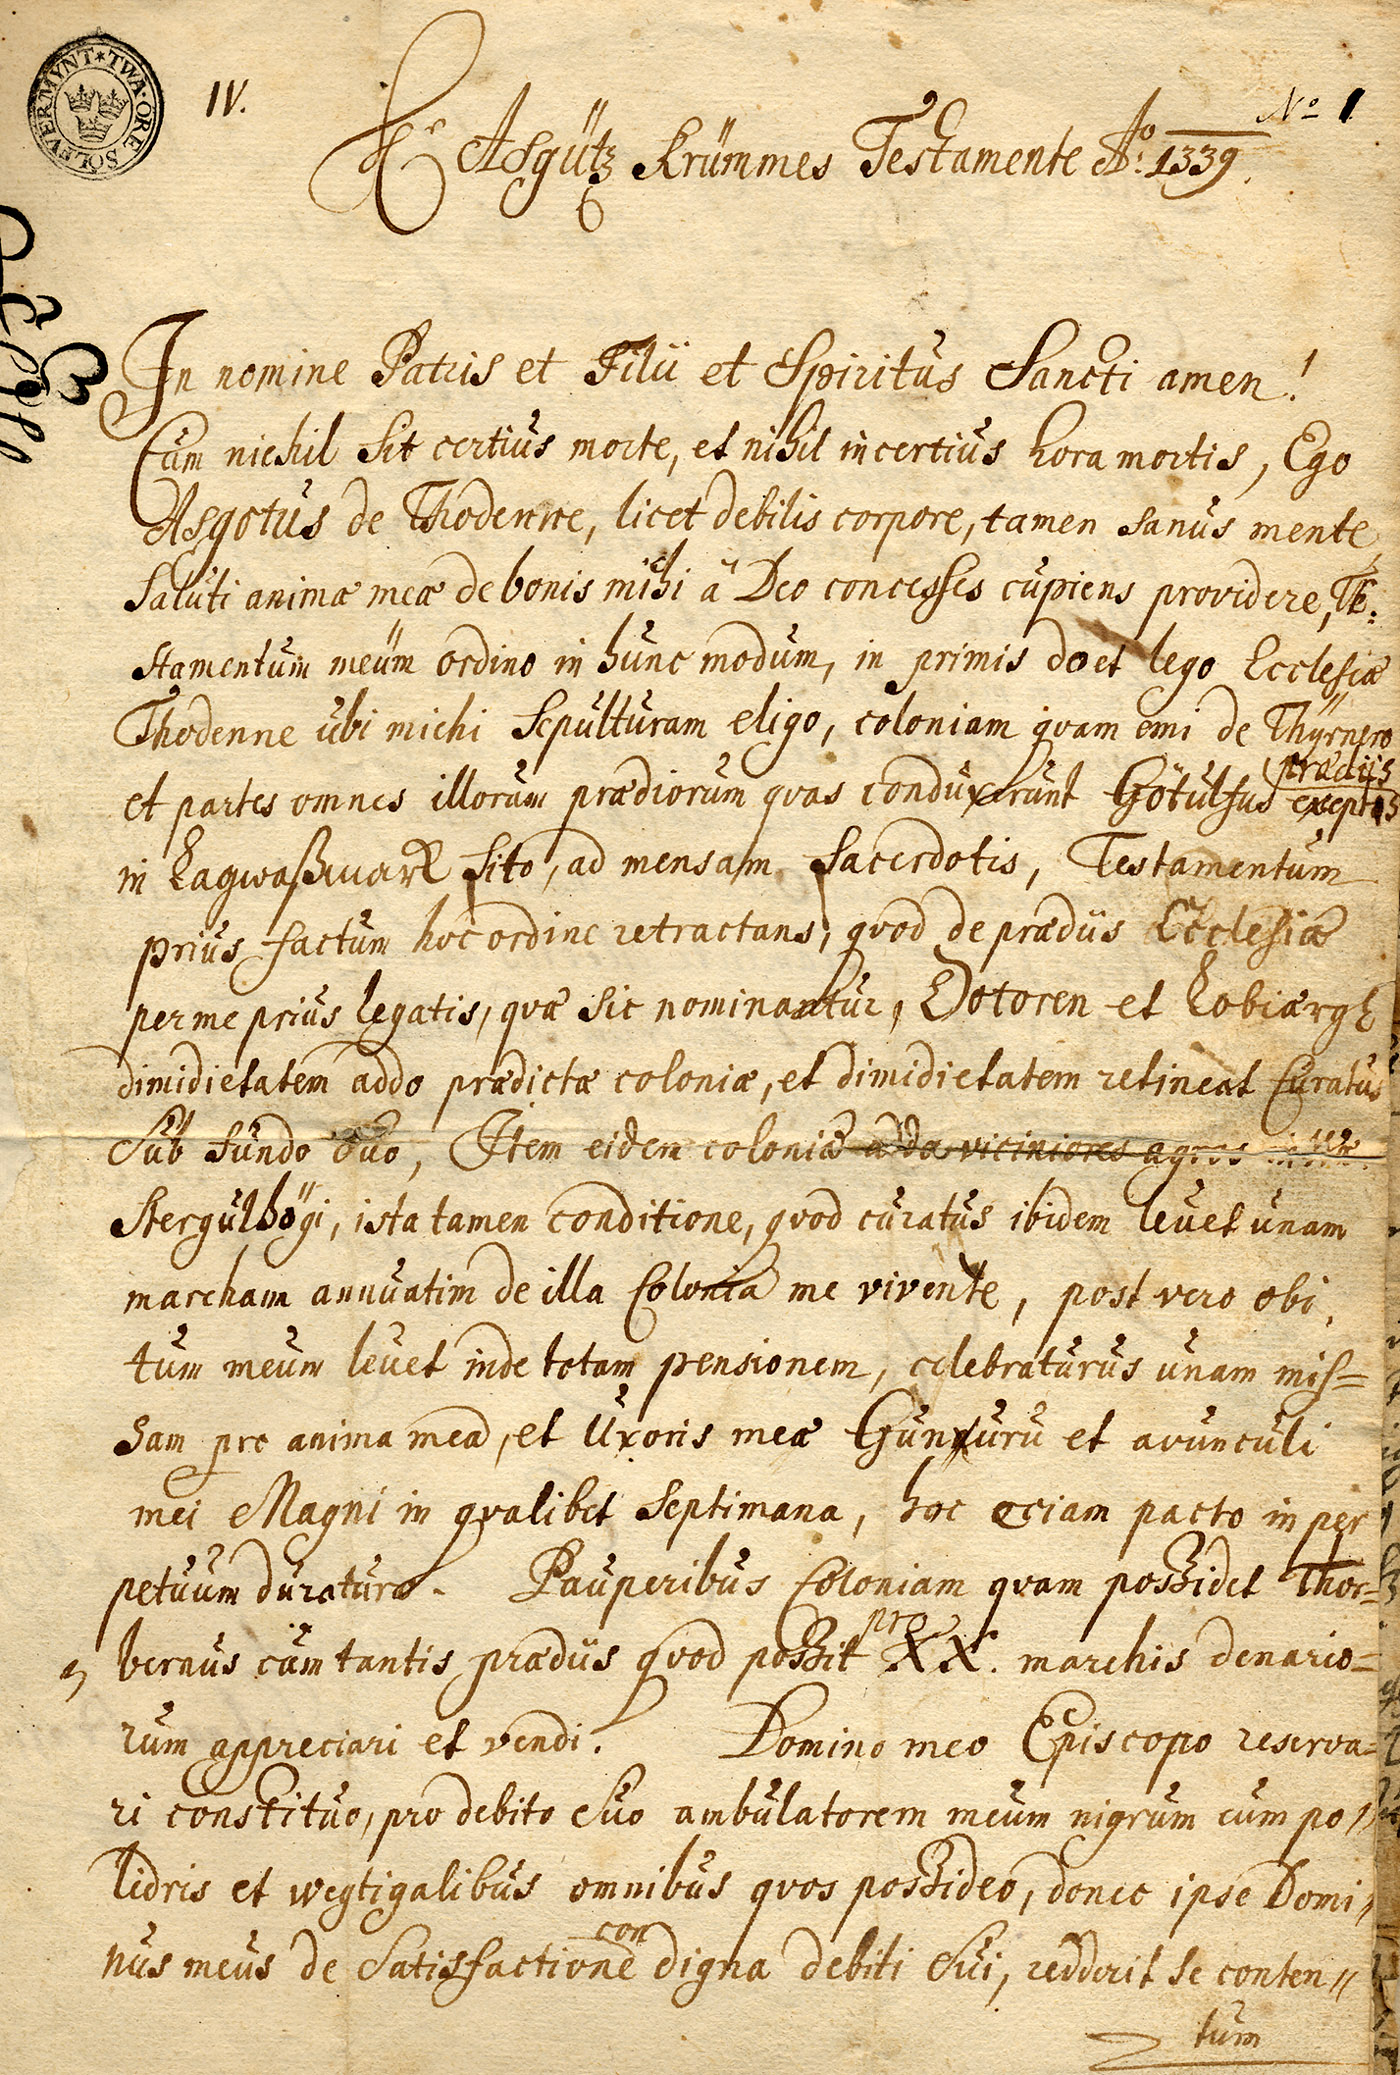 TWA·ORE SÖLFVERMYNT
IV.
No 1
Hr Asgütz Krümmes Testamente Ao: 1339.
In nomine Patris et Filii et Spiritus Sancti amen!
Cum nichil sit certius morte, et nihil incertius hora mortis, Ego
Asgotus de Thodenne, licet debilis corpore, tamen sanus mente,
Saluti animæ meæ de bonis michi â Deo concesses cupiens providere, Te:
stamentum meum ordino in hunc modum, in primis do et lego Ecclesiæ
Thodenne ubi michi sepulturam eligo, coloniam qvam emi de Thyrnero
prædiis
et partes omnes illorum prædiorum qvas conduxerunt Götulfus exeptis
in Lagwaßmark sito, ad mensam sacerdotis, Testamentum
prius factum hoc ordine retractans, qvod de prædiis Ecclesiæ
per me prius legatis, qvæ sic nominantur, Dotoren et Lobiærgh
dimidietatem addo prædictæ coloniæ, et dimidietatem retineat Curatus
Sub fundo suo, Item eidem coloniæ adda viciniores agros
Stergulhögi, ista tamen conditione, qvod curatus ibidem levet unam
marcham annuatim de illa Colonia me vivente, post vero obi,
tum meum levet inde totam pensionem, celebraturus unam mis=
sam pro anima mea, et Uxoris meæ Gunnuru et avunculi
mei Magni in qvalibet septimana, hoc eciam pacto in per
petuum duraturo. Pauperibus Coloniam qvam poszidet Thor=
bernus cum tantis prædiis qvod poszit pro XX. marchis denario=
rum appreciari et vendi. Domino meo Episcopo reserva=
ri constituo, pro debito suo ambulatorem meum nigrum cum po//
lidris et wegtigalibus omnibus qvos poszideo, donec ipse Domi//
con
nus meus de Satisfactione digna debiti sui, redderit se conten//
tum